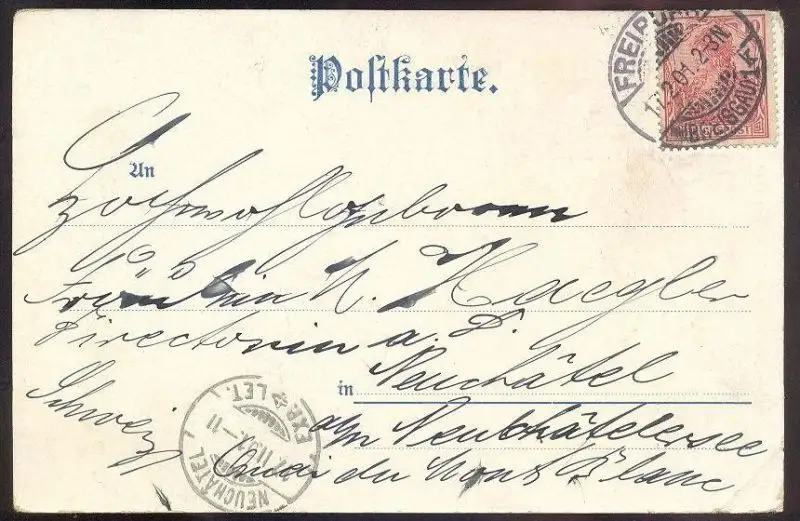 Postkarte.
FREIBURG
2.01. 2-3N
(BREISGAU) 1
REICHSPOST
An
Hochwohlgeboren
Fräulein H. Haegler
Directorin a. D.
in Neuchâtel
Schweiz
a/m Neuchâtelersee
Quai du Mont Blanc
NEUCHÂTEL
EXP. LET.